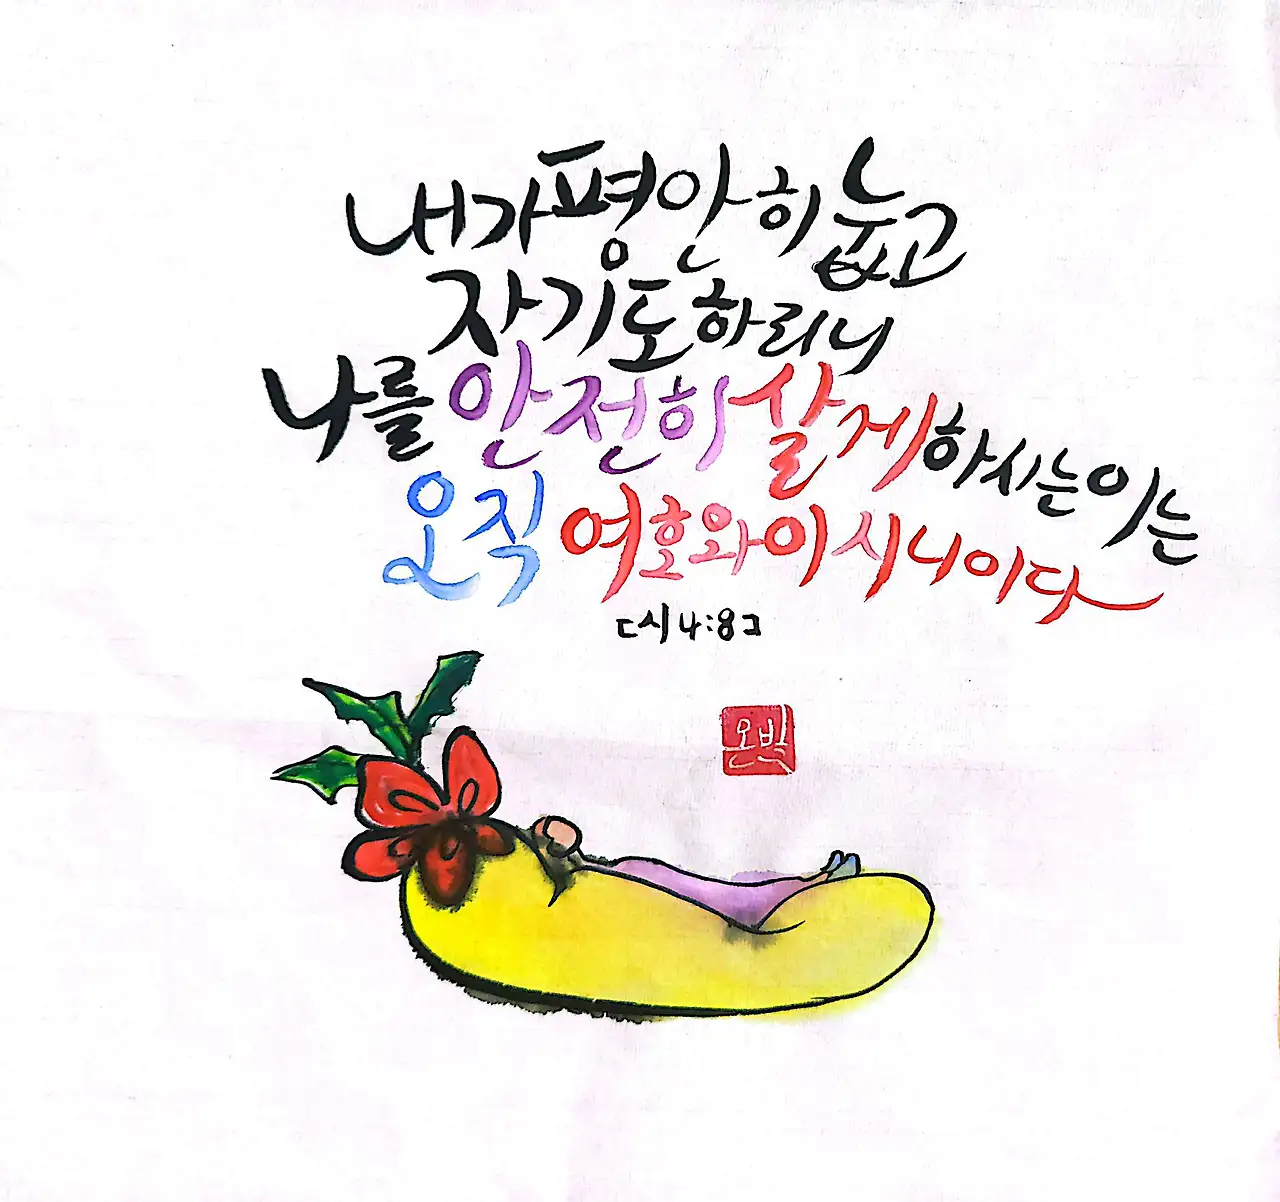 내가 평안히 눕고
자기도 하리니
나를 안전히 살게 하시는 이는
오직 여호와이시니이다
[시 4:8]
온빛